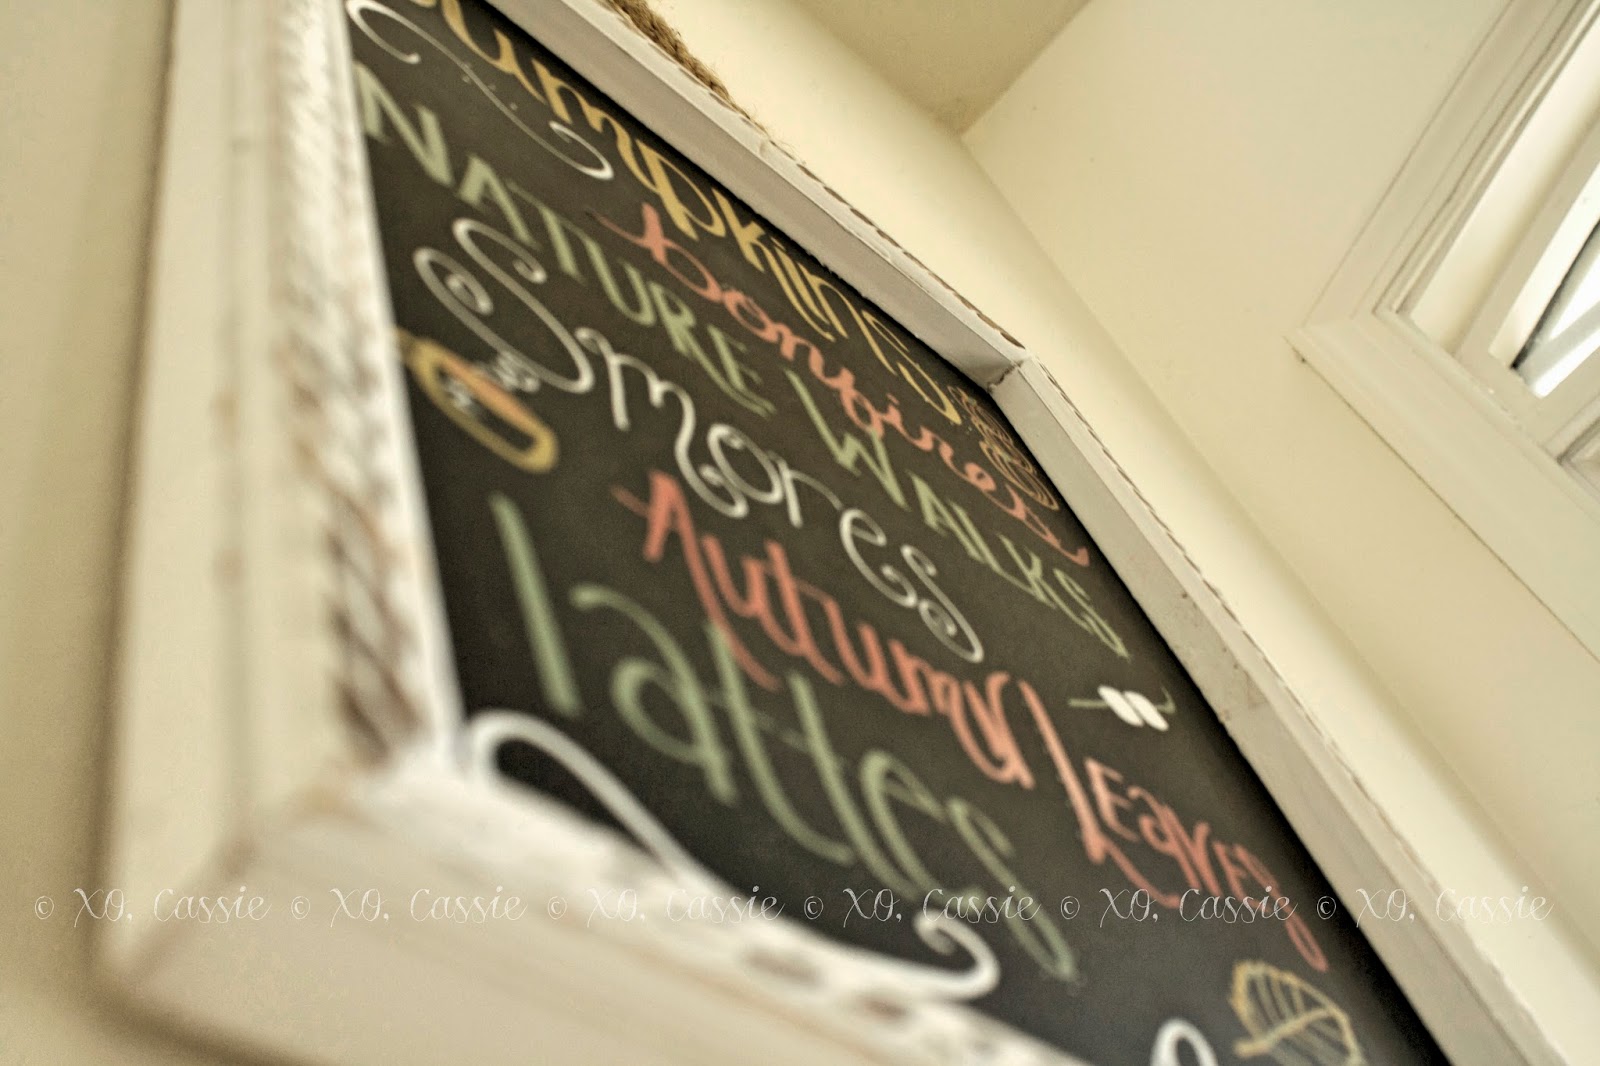 Pumpkins
bonfires
NATURE WALKS
Smores
Autumn Leaves
lattes
© XO, Cassie © XO, Cassie © XO, Cassie © XO, Cassie © XO, Cassie © XO, Cassie